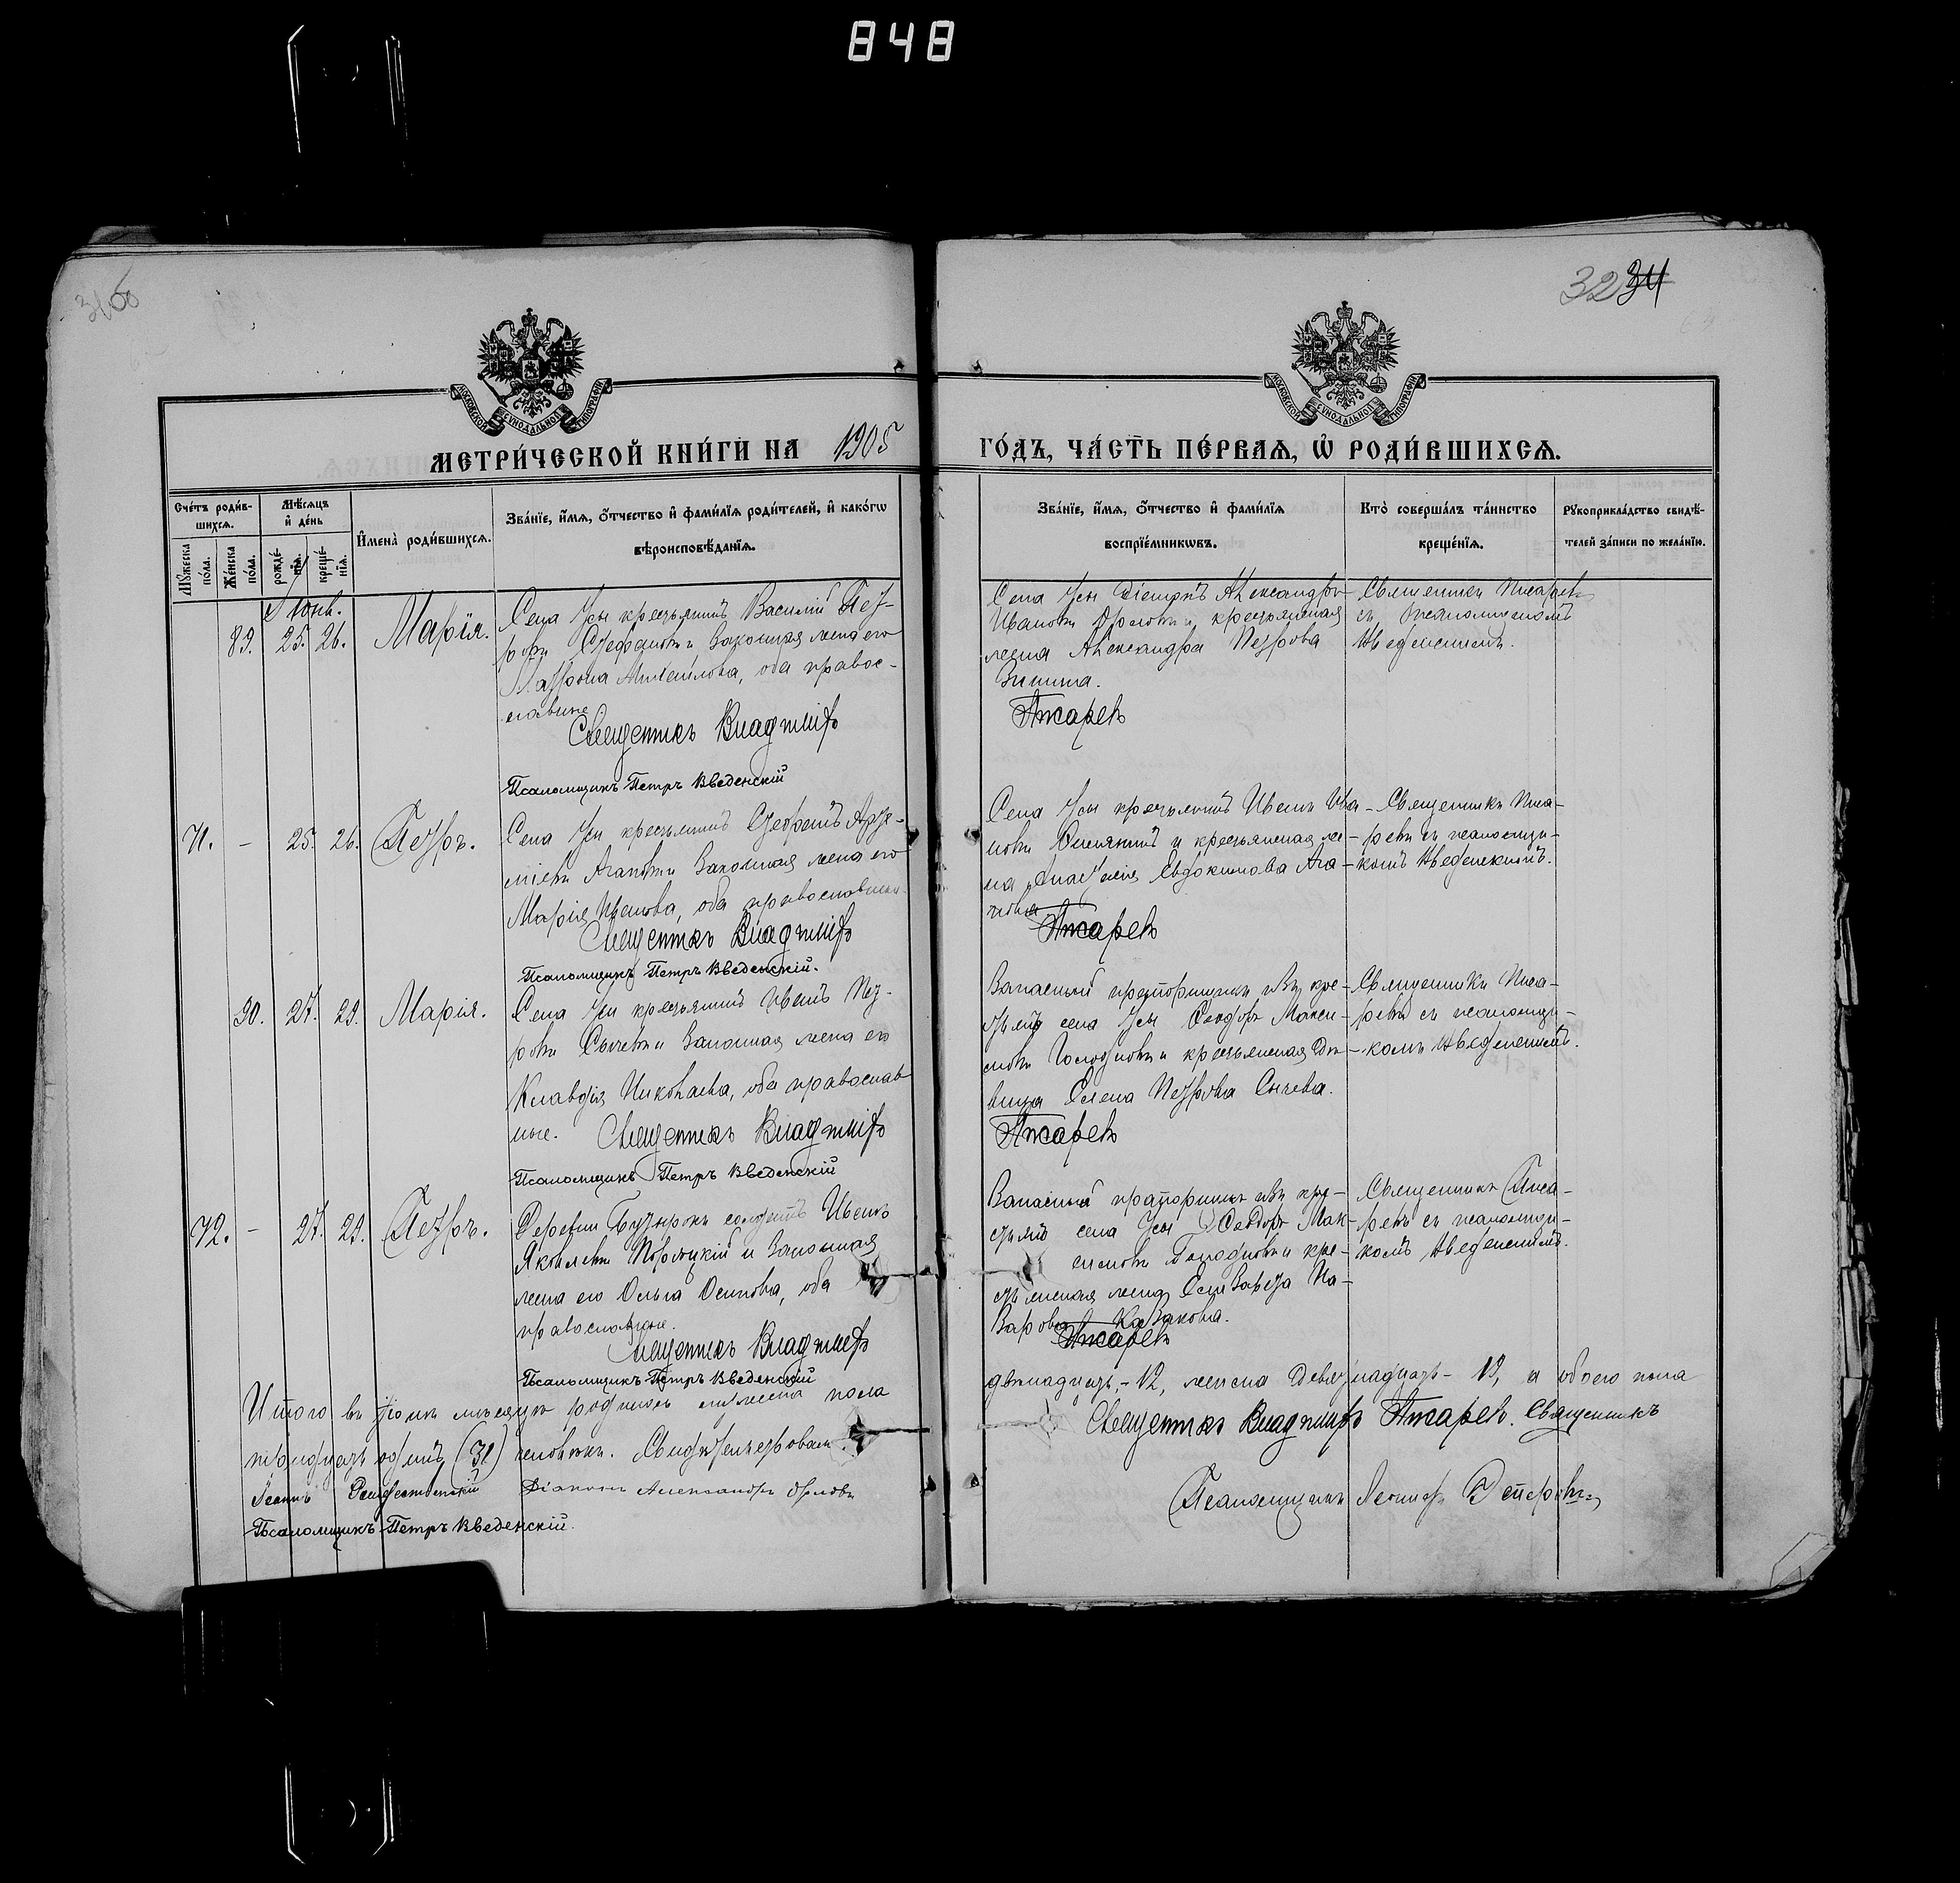 848
3232 34
МОСКОВСКОЙ СѴНОДАЛЬНОЙ ТИПОГРАФІИ
МОСКОВСКОЙ СѴНОДАЛЬНОЙ ТИПОГРАФІИ
МЕТРИ́ЧЕСКОЙ КНИ́ГИ НА 1905 ГО́ДЪ, ЧА́СТЬ ПЕ́РВАѦ, Ѽ РОДИ́ВШИХСѦ.
Сче́тъ роди́в-
шихсѧ.
Мѣ́сѧцъ
и҆ де́нь
Мꙋ́жеска по́ла.
Же́нска по́ла.
рожде́-
нїѧ.
креще́-
нїѧ.
И҆мена̀ роди́вшихсѧ.
Зва́нїе, и҆́мѧ, ѻ҆́тчество и҆ фами́лїѧ роди́телей, и҆ како́гѡ
вѣроисповѣ́данїѧ.
Зва́нїе, и҆́мѧ, ѻ҆́тчество и҆ фами́лїѧ
воспрїе́мникѡвъ.
Кто̀ соверша́лъ та́инство
креще́нїѧ.
Рꙋкоприкла́дство свидѣ́-
телей за́писи по жела́нїю.
Іюнь.
89. 25. 26. Марія.
Села Усы крестьянинъ Василій Пет-
ровъ Стефановъ и законная жена его
Матрона Михайлова, оба правос-
лавные
Священникъ Владиміръ
Писаревъ
Псаломщикъ Петръ Введенскій
Села Усы Діаконъ Александръ
Ивановъ Орловъ и крестьянская
жена Александра Петрова
Священникъ Писаревъ
съ псаломщикомъ
Введенскимъ.
71. – 25. 26. Петръ.
Села Усы крестьянинъ Георгій
и законная жена его
Марія Иванова, оба православные
Священникъ Владиміръ
Писаревъ
Псаломщикъ Петръ Введенскій.
Села Усы крестьянинъ Иванъ Ива-
новъ и крестьянская же-
на Анастасія Евдокимова Ага-
Священникъ Писа-
ревъ съ псаломщи-
комъ Введенскимъ.
90. 27. 29. Марія.
Села Усы крестьянинъ Иванъ Пет-
ровъ Сычевъ и законная жена его
Клавдія Николаева, оба православ
ные. Священникъ Владиміръ
Писаревъ
Псаломщикъ Петръ Введенскій
Запасный прапорщикъ изъ кре-
стьянъ села Усы Ѳеодоръ Макси-
мовъ Голодновъ и крестьянская дѣ-
вица Елена Петрова Сычева.
Священникъ Писа-
ревъ съ псаломщи-
комъ Введенскимъ.
72. – 27. 29. Петръ.
Деревни солдатъ Иванъ
Яковлевъ и законная
жена его Ольга Осипова, оба
православные.
Священникъ Владиміръ
Писаревъ
Псаломщикъ Петръ Введенскій
Запасный прапорщикъ изъ кре-
стьянъ села Усы Ѳеодоръ Мак-
симовъ Голодновъ и кре-
стьянская жена Елизавета На-
зарова Казакова.
Священникъ Писа-
ревъ съ псаломщи-
комъ Введенскимъ.
Итого въ Іюнѣ мѣсяцѣ родилось мужеска пола
двѣнадцать – 12, женска девятнадцать – 19, а обоего пола
тридцать одинъ (31) человѣкъ. Свидѣтельствовали:
Священникъ Владиміръ Писаревъ. Священникъ
Іоаннъ Рождественскій Діаконъ Александръ Орловъ
Псаломщикъ
Псаломщикъ Петръ Введенскій.